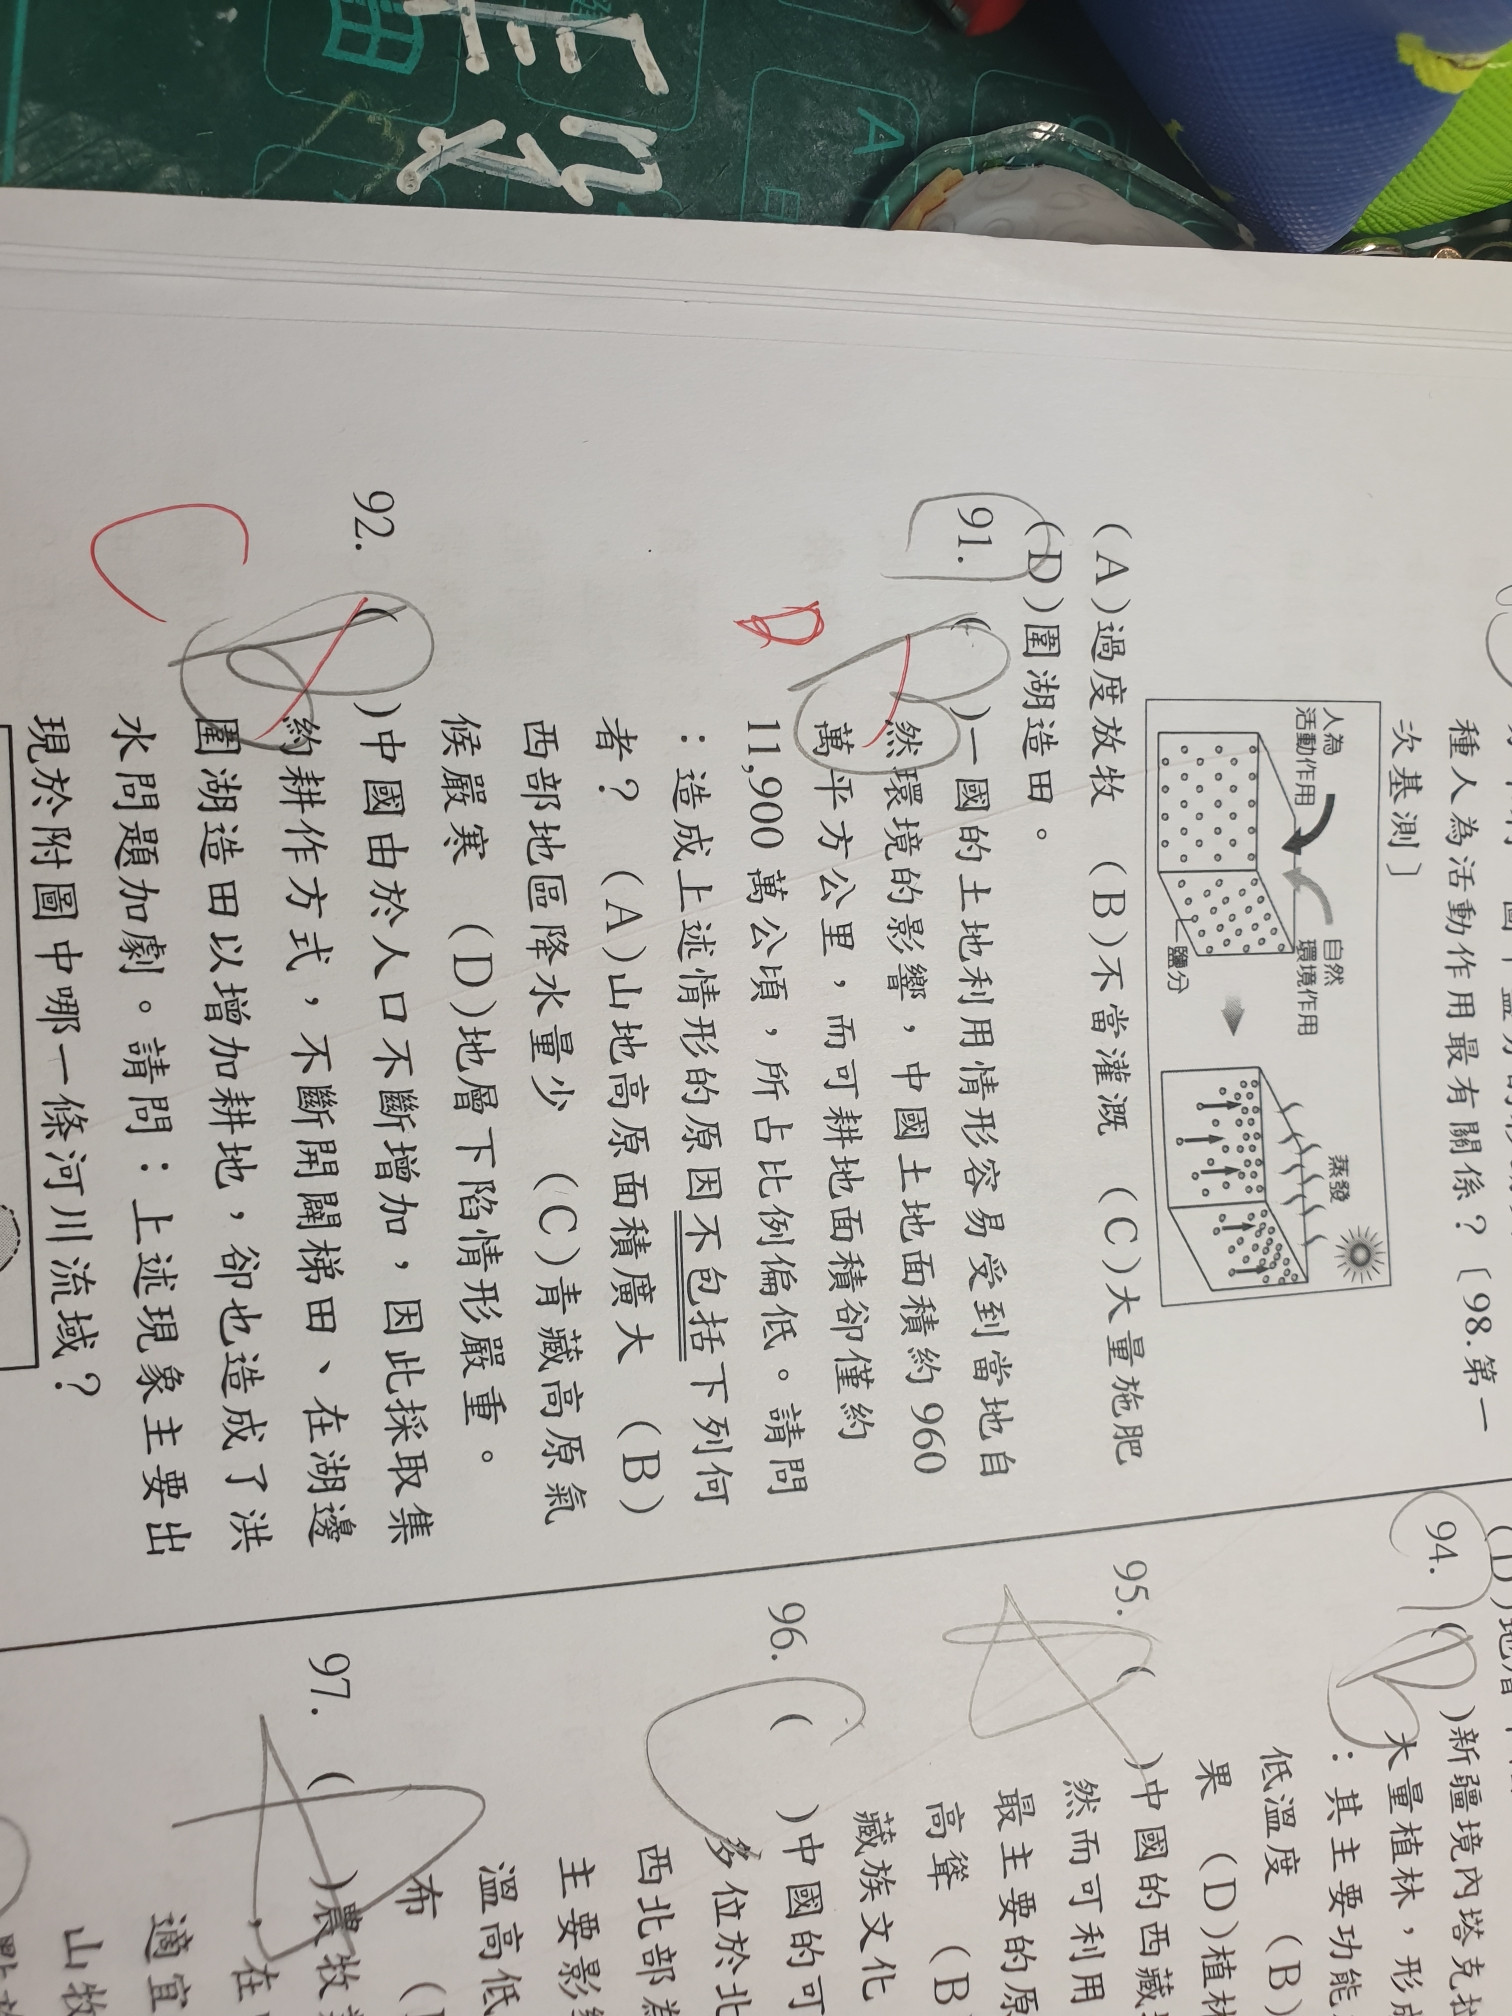 種人為活動作用最有關係？〔98.第一
次基測〕
人為
活動作用
自然
環境作用
鹽分
蒸發
(A)過度放牧 (B)不當灌溉 (C)大量施肥
(D)圍湖造田。
91. ( )一國的土地利用情形容易受到當地自
然環境的影響，中國土地面積約960
萬平方公里，而可耕地面積卻僅約
11,900萬公頃，所占比例偏低。請問
：造成上述情形的原因不包括下列何
者？ (A)山地高原面積廣大 (B)
西部地區降水量少 (C)青藏高原氣
候嚴寒 (D)地層下陷情形嚴重。
B
D
92. ( )中國由於人口不斷增加，因此採取集
約耕作方式，不斷開闢梯田、在湖邊
圍湖造田以增加耕地，卻也造成了洪
水問題加劇。請問：上述現象主要出
現於附圖中哪一條河川流域？
B
C
94. ( )新疆境內塔克拉
大量植林，形成
：其主要功能
低溫度 (B)
果 (D)植林
B
95. ( )中國的西藏
然而可利用
最主要的原
高聳 (B
藏族文化
A
96. ( )中國的可
多位於北
西北部為
主要影
溫高低
布 (
C
97. ( )農牧
，在
適宜
山牧
A